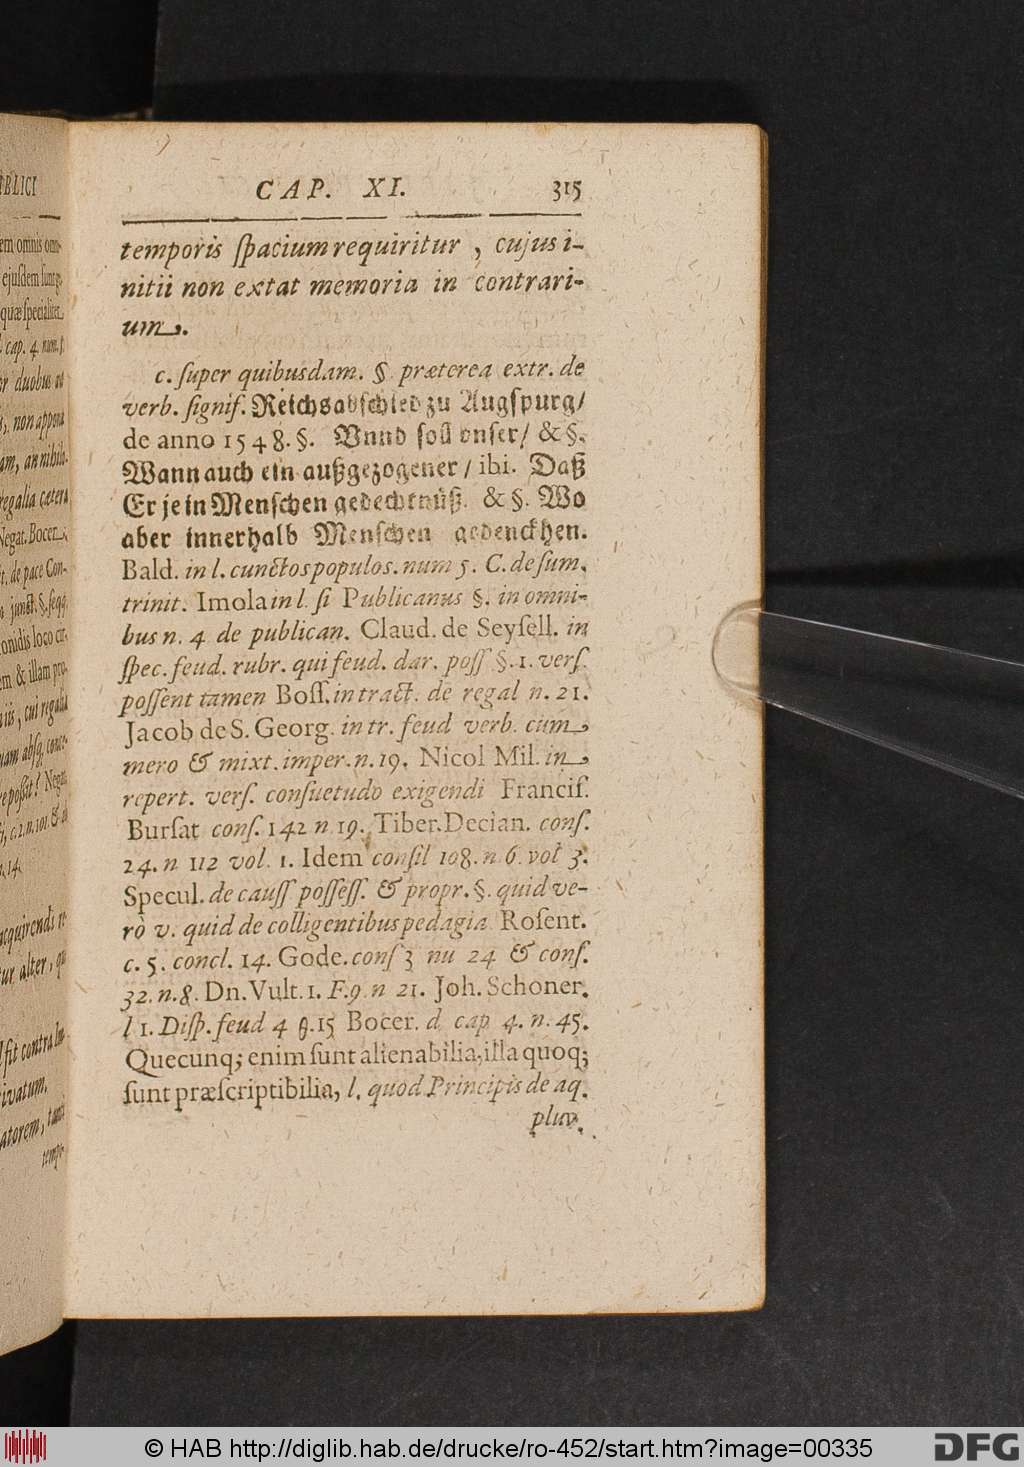 CAP. XI. 315
temporis ſpacium requiritur, cujus i-
nitii non extat memoria in contrari-
um.
c. ſuper quibusdam. §. præterea extr. de
verb. ſignif. Reichsabſchied zu Augſpurg/
de anno 1548. §. Vnnd ſoll vnſer/ & §.
Wann auch ein außgezogener/ ibi. Daß
Er je in Menſchen gedechtnüß. & §. Wo
aber innerhalb Menſchen gedenckhen.
Bald. in l. cunctos populos. num 5. C. de ſum.
trinit. Imola in l. ſi Publicanus §. in omni-
bus n. 4. de publican. Claud. de Seyſell. in
ſpec. feud. rubr. qui feud. dar. poſſ §. 1. verſ.
poſſent tamen Boſſ. in tract. de regal n. 21.
Jacob de S. Georg. in tr. feud verb. cum
mero & mixt. imper. n. 19. Nicol Mil. in
repert. verſ. conſuetudo exigendi Franciſ.
Burſat conſ. 142 n 19. Tiber. Decian. conſ.
24. n 112 vol. 1. Idem conſil 108. n. 6. vol 3.
Specul. de cauſſ poſſeſſ. & propr. §. quid ve-
rò v. quid de colligentibus pedagia Roſent.
c. 5. concl. 14. Gode. conſ 3 nu 24 & conſ.
32. n. 8. Dn. Vult. 1. F. 9. n 21. Joh. Schoner.
l 1. Diſp. feud 4 §. 15 Bocer. d cap 4. n. 45.
Quecunq; enim ſunt alienabilia, illa quoq;
ſunt præſcriptibilia, l. quod Principis de aq.
pluv.
BLICI
ejuſdem ſunt
quæ ſpecialiter
cap. 4. num.
duobus
non
regalia cætera
Negat. Bocer.
de pace Con-
junct. §. ſeqq.
loco cit.
& illam pro-
iis, cui regalia
poſſit? Negat.
14.
acquirendi
alter,
fit contra
ivatum,
tempo-
© HAB http://diglib.hab.de/drucke/ro-452/start.htm?image=00335
DFG